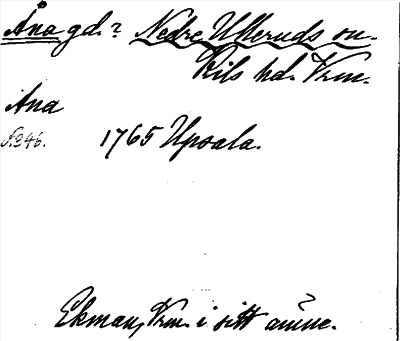 Åna gd.? Nedre Ulleruds sn.
Kils hd. Vrm.
Ana
1765 Upsala.
Ekman, Vrm. i sitt ämne.